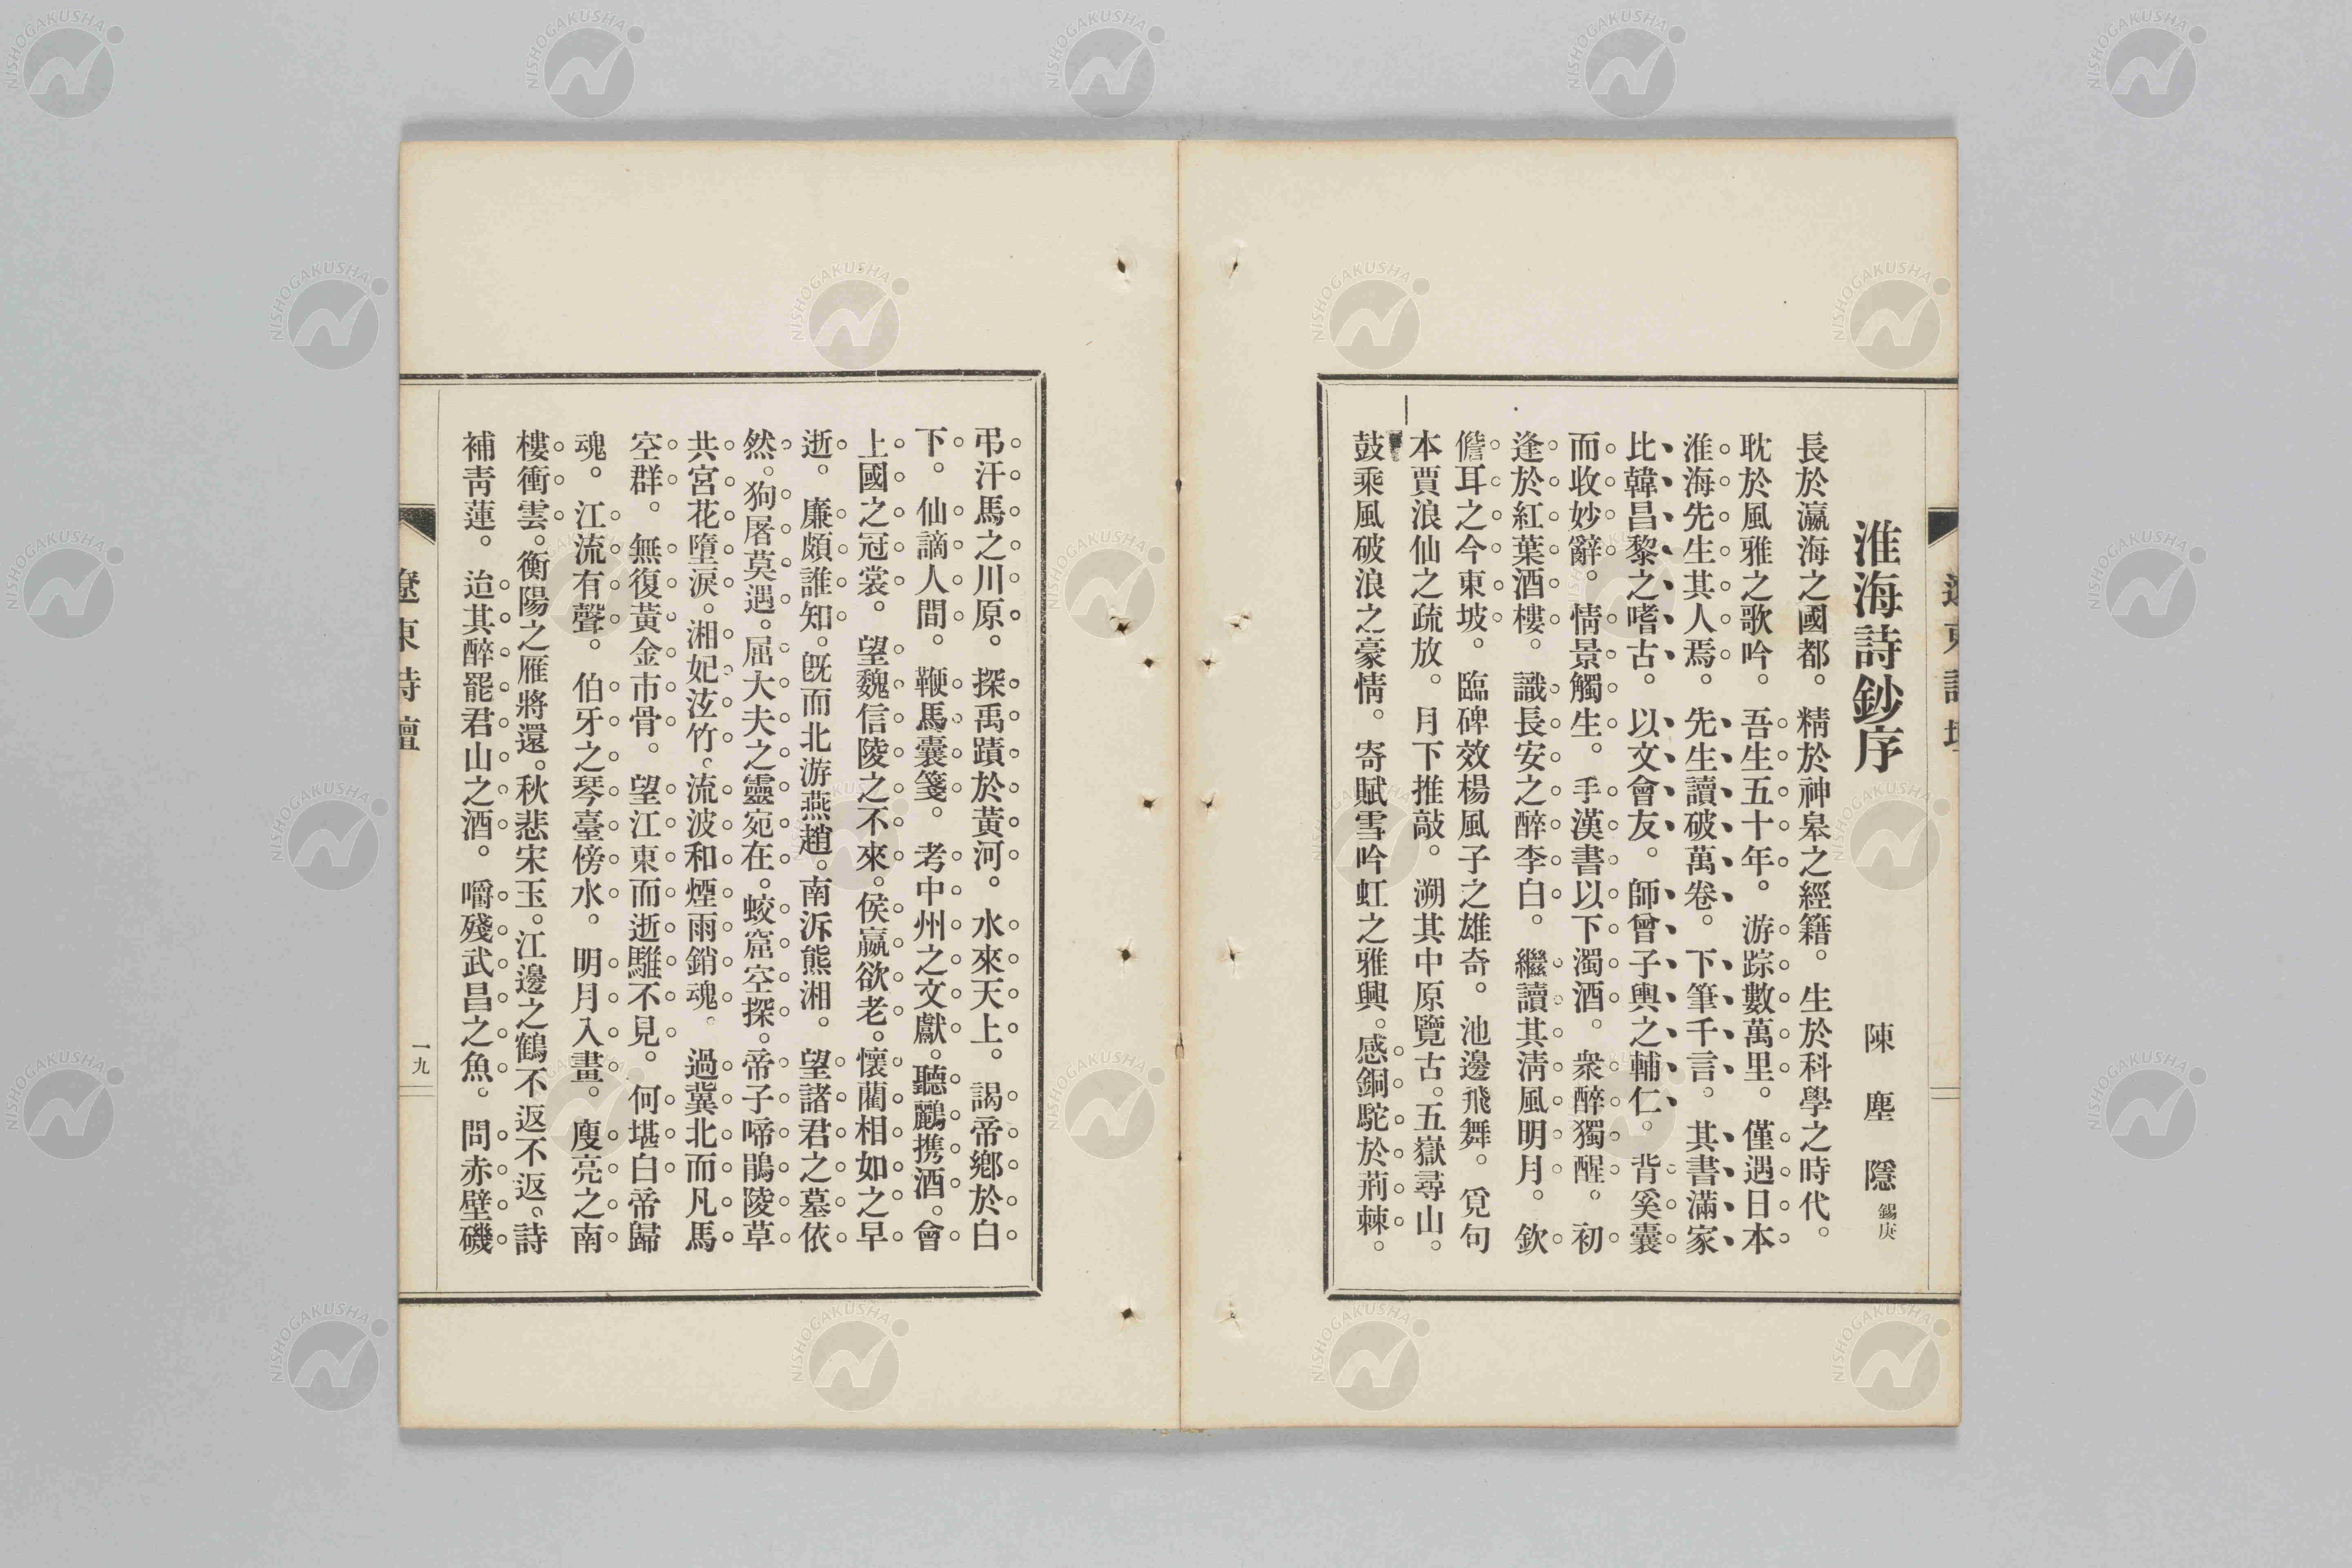 淮海詩鈔序
陳塵隱錫庚
長於瀛海之國都。精於神皋之經籍。生於科學之時代。
耽於風雅之歌吟。吾生五十年。游踪數萬里。僅遇日本
淮海先生其人焉。先生讀破萬卷。下筆千言。其書滿家
比韓昌黎之嗜古。以文會友。師曾子輿之輔仁。背奚囊
而收妙辭。情景觸生。手漢書以下濁酒。衆醉獨醒。初
逢於紅葉酒樓。識長安之醉李白。繼讀其淸風明月。欽
儋耳之今東坡。臨碑效楊風子之雄奇。池邊飛舞。覓句
本賈浪仙之疏放。月下推敲。溯其中原覽古。五嶽尋山。
鼓乘風破浪之豪情。寄賦雪吟虹之雅興。感銅駝於荊棘。
弔汗馬之川原。探禹蹟於黃河。水來天上。謁帝鄕於白
下。仙謫人間。鞭馬囊箋。考中州之文獻。聽鸝携酒。會
上國之冠裳。望魏信陵之不來。侯嬴欲老。懷藺相如之早
逝。廉頗誰知。旣而北游燕趙。南泝熊湘。望諸君之墓依
然。狗屠莫遇。屈大夫之靈宛在。蛟窟空探。帝子啼鵑陵草
共宮花墮淚。湘妃泫竹。流波和煙雨銷魂。過冀北而凡馬
空群。無復黃金市骨。望江東而逝騅不見。何堪白帝歸
魂。江流有聲。伯牙之琴臺傍水。明月入畫。庾亮之南
樓衝雲。衡陽之雁將還。秋悲宋玉。江邊之鶴不返不返。詩
補靑蓮。迨其醉罷君山之酒。嚼殘武昌之魚。問赤壁磯
遼東詩壇
一九